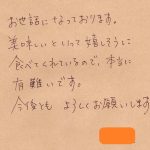 お世話になっております。
美味しいといって嬉しそうに
食べてくれているので、本当に
有難いです。
今後とも よろしくお願いします